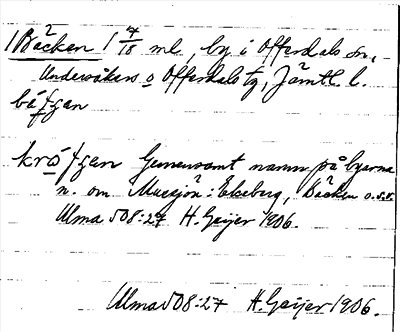 1 Backen 1 4/18 ml, by i Offerdals sn,
Undersåkers o Offerdals tg, Jämtl. l.
krōfgen Gemensamt namn på byarna
n. om Mussjön: Ekeberg, Backen o.s.v.
Ulma 508:27 H. Geijer 1906.
Ulma 508:27 H. Geijer 1906.